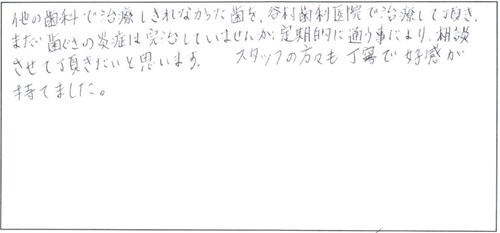 他の歯科で治療しきれなかった歯を、谷村歯科医院で治療して頂き、
まだ歯ぐきの炎症は完治していませんが、定期的に通う事により、相談
させて頂きたいと思います。 スタッフの方々も丁寧で好感が
持てました。